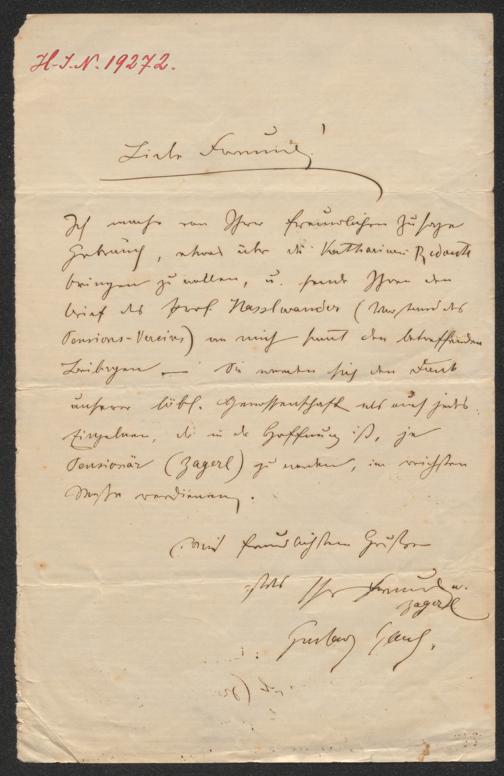 H.I.N. 19272.
Liebe Freund!
Ich mache von Ihrer freundlichen Zusage
Gebrauch, etwas über die Katharinen
bringen zu wollen, u. sende Ihnen den
Brief des Prof. Hasslwander (Vorstand des
Pensions-Vereins) an mich sammt den betreffenden
Beilagen — Sie werden sich den Dank
unserer löbl. Genossenschaft als auch jedes
Einzelnen, der in der Hoffnung ist, je
Pensionär (Zagerl) zu werden, im reichsten
Maße verdienen.
Mit freundlichsten Grüßen
stets Ihr Freund u.
Zagerl
Gustav